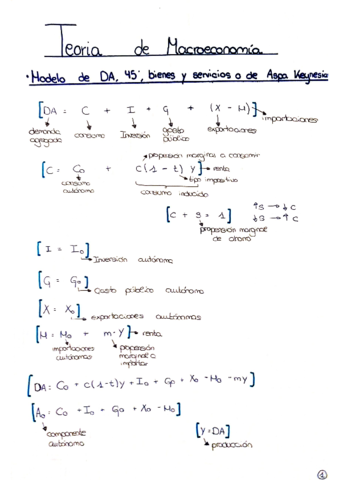 Teoria de Macroeconomía
· Modelo de DA, 45°, bienes y servicios o de Aspa Keynesia
[DA = C + I + G + (X - M)] → importaciones
demanda agregada consumo Inversión gasto público exportaciones
→ propension marginal a consumir
[C = C₀ + c(1 - t) Y] → renta
→ tipo impositivo
consumo autónomo consumo inducido
[c + s = 1] ↑s → ↓c
↓s → ↑c
propensión marginal de ahorro
[I = I₀] → Inversión autónoma
[G = G₀] → Gasto público autónomo
[X = X₀] → exportaciones autónomas
[M = M₀ + m·Y] → renta
importaciones autónomas propensión marginal a importar
[DA = C₀ + c(1-t)y + I₀ + G₀ + X₀ - M₀ - my]
[A₀ = C₀ + I₀ + G₀ + X₀ - M₀]
componente autónomo
[Y = DA]
→ producción
1